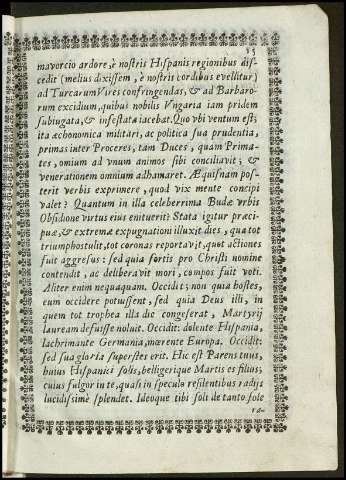 15
mavorcio ardore, è nostris Hispanis regionibus dis-
cedit (melius dixissem, è nostris cordibus evellitur)
ad Turcarum Vires confringendas, & ad Barbaro-
rum excidium, quibus nobilis Vngaria iam pridem
subiugata, & infestata iacebat. Quo vbi ventum est;
ita æchonomica militari, ac politica sua prudentia,
primas inter Proceres, tam Duces, quam Prima-
tes, omium ad vnum animos sibi conciliavit; &
venerationem omnium adhamaret. Æquisnam pos-
terit verbis exprimere, quod vix mente concipi
valet? Quantum in illa celeberrima Budæ vrbis
Obsidione virtus eius enituerit? Stata igitur præci-
puæ, & extremæ expugnationi illuxit dies, qua tot
triumphos tulit, tot coronas reportavit, quot actiones
fuit aggresus: sed quia fortis pro Christi nomine
contendit, ac deliberavit mori, compos fuit voti.
Aliter enim nequaquam. Occidit; non quia hostes,
eum occidere potussent, sed quia Deus illi, in
quem tot trophea illa die congeserat, Martyrij
lauream defuisse noluit. Occidit: dolente Hispania,
lachrimante Germania, mœrente Europa. Occidit:
sed sua gloria superstes erit. Hic est Parens tuus,
huius Hispanici solis, belligerique Martis es filius;
cuius fulgor in te, quasi in speculo resilentibus radijs
lucidissimè splendet. Ideoque tibi soli de tanto sole